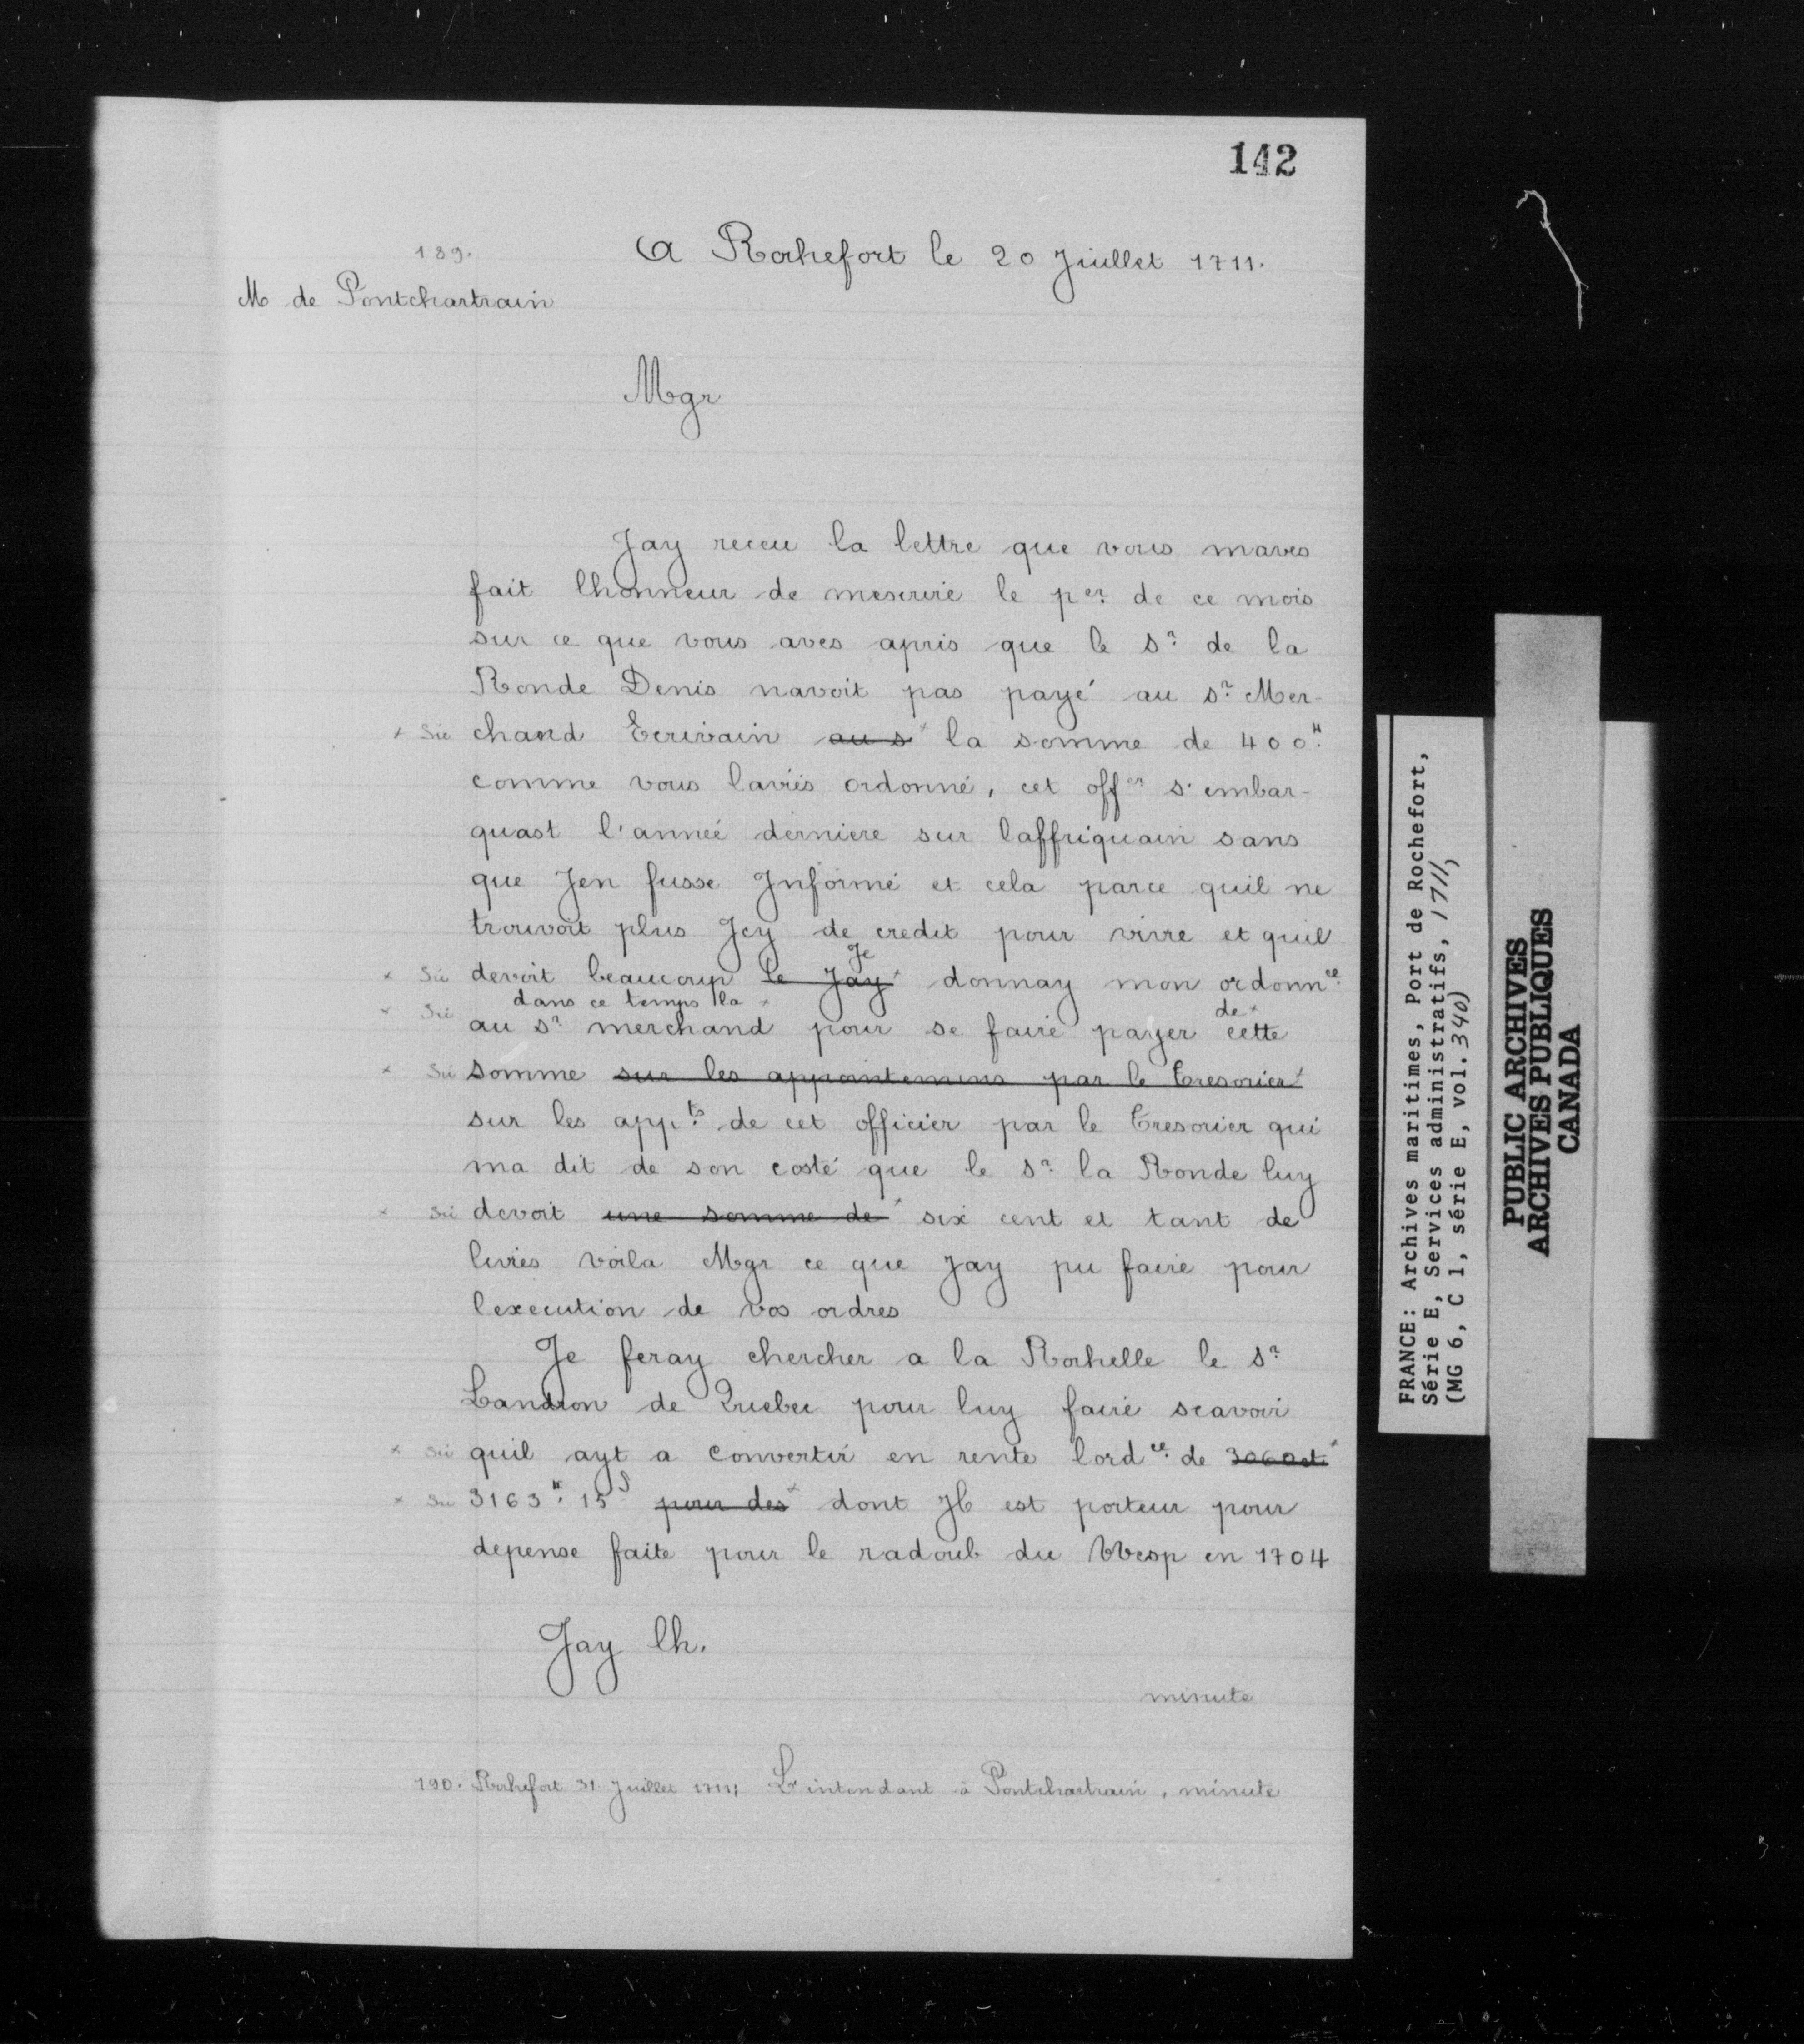 142
189.
A Rochefort le 20 Juillet 1711.
M de Pontchartrain
Mgr
Jay receu la lettre que vous maves
fait lhonneur de mescrire le per. de ce mois
sur ce que vous aves apris que le sr. de la
Ronde Denis navoit pas payé au sr. Mer-
x Sic chand Ecrivain au s x la somme de 400#.
comme vous laviés ordonné, cet offer s'embar-
quast l'anneé derniere sur laffriquain sans
que Jen fusse Informé et cela parce quil ne
trouvoit plus Jcy de credit pour vivre et quil
Je
x Sic devoit beaucoup le Jay x donnay mon ordonnce.
x Sic dans ce temps la x de x
au sr. merchand pour se faire payer cette
x Sic somme sur les appointemens par le Tresorier x
sur les appts. de cet officier par le Tresorier qui
ma dit de son costé que le sr. la Ronde luy
x Sic devoit une somme de x six cent et tant de
livres voila Mgr ce que Jay pu faire pour
lexecution de vos ordres
Je feray chercher a la Rochelle le sr.
Landron de Quebec pour luy faire scavoir
x Sic quil ayt a convertir en rente lordce. de 3060 et. x
x Sic 3163#. 15s pour des x dont Jl est porteur pour
depense faite pour le radoub du Wesp en 1704
Jay lh.
minute
190. Rochefort 31 Juillet 1711; L'intendant à Pontchartrain, minute
FRANCE: Archives maritimes, Port de Rochefort,
Série E, Services administratifs, 1711,
(MG 6, C 1, série E, vol. 340)
PUBLIC ARCHIVES
ARCHIVES PUBLIQUES
CANADA